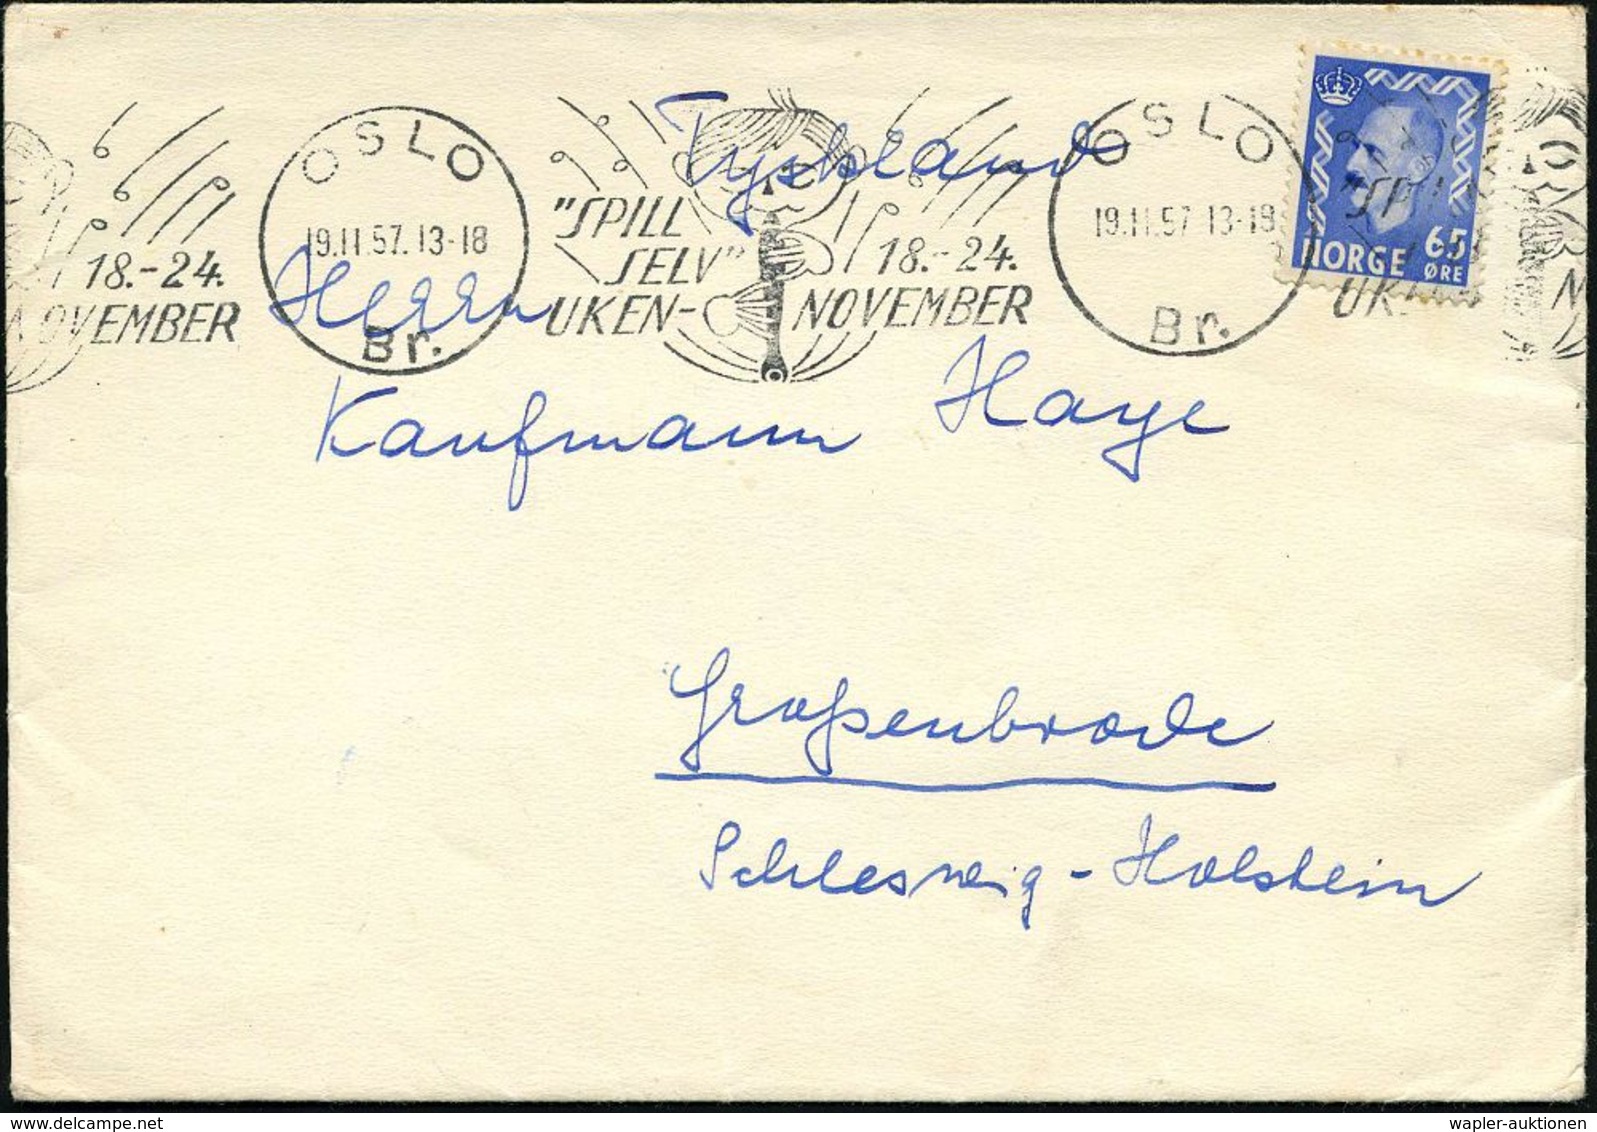 Tyskland
OSLO
19.11.57.13-18
Br.
"SPILL
SELV"
UKEN-
18.-24.
NOVEMBER
OSLO
19.11.57 13-18
Br.
18.-24.
NOVEMBER
"SPILL
NORGE 65
ØRE
Herrn
Kaufmann Haye
Großenbrode
Schleswig-Holstein
wapler-auktionen